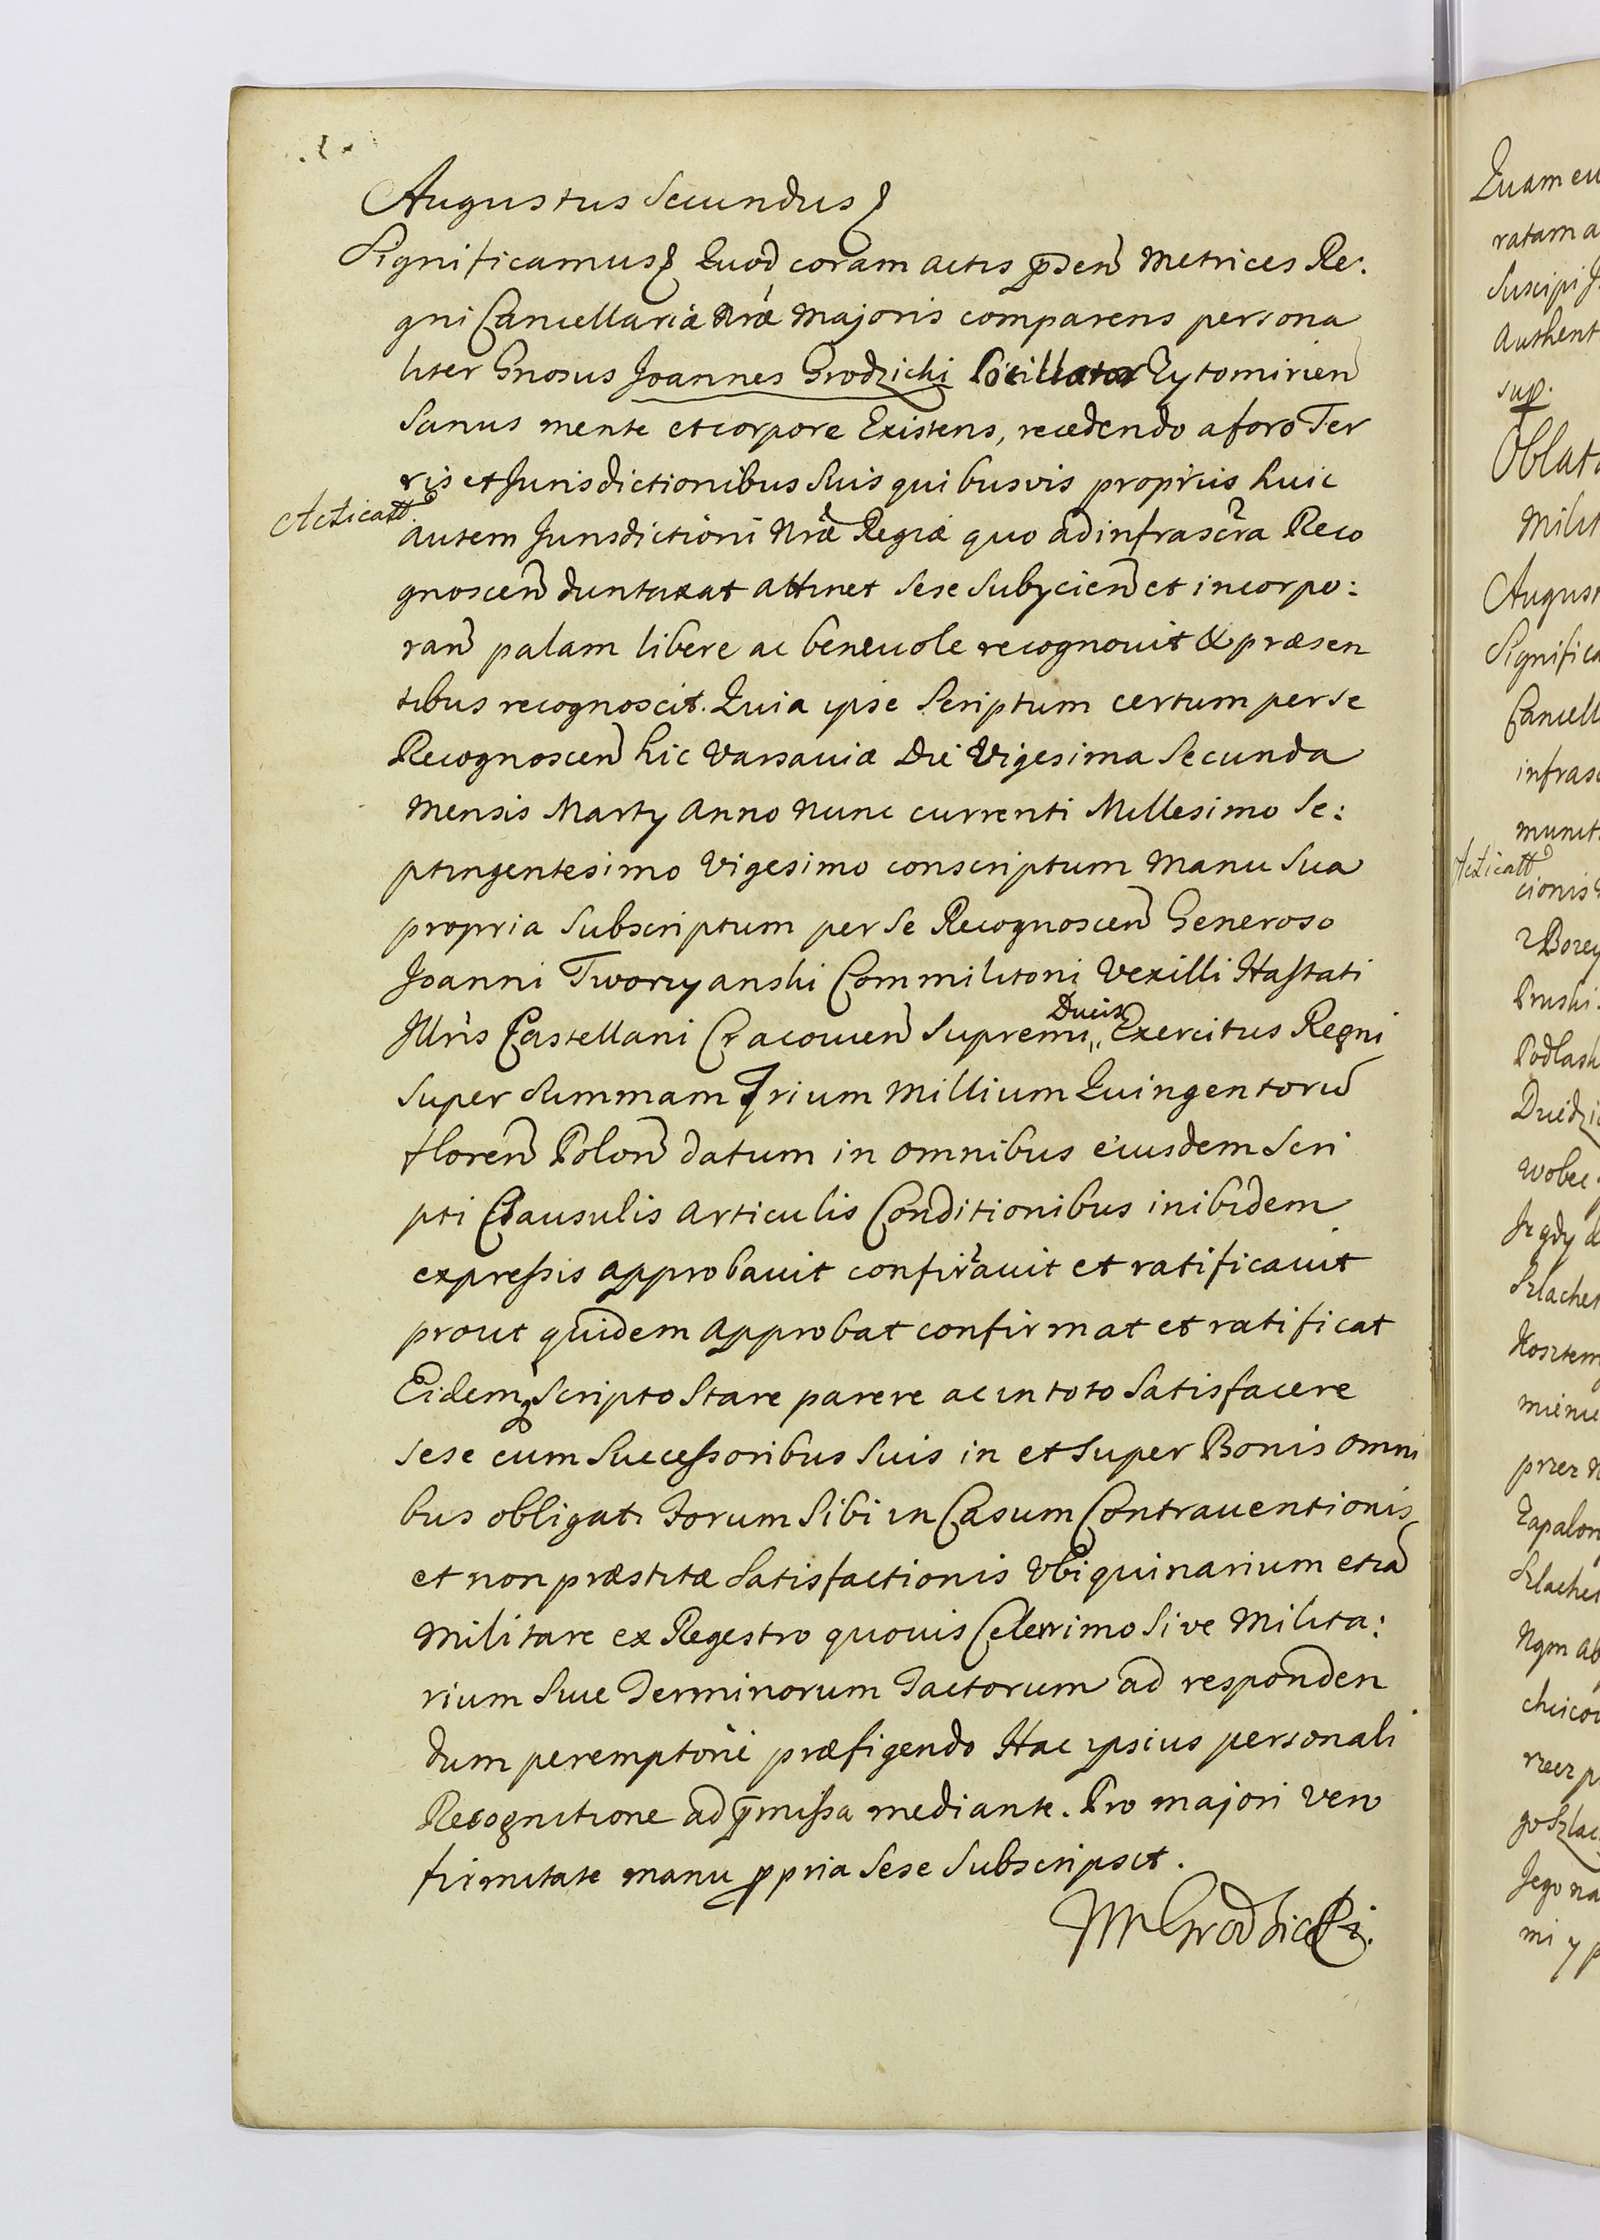 Augustus Secundus
Significamus Quod coram actis p̄sen̄ Metrices Re:
gni Cancellariæ Nr̄æ Majoris comparens persona
liter Gnosus Joannes Grodzicki Pocillator Zytomirien̄
Sanus mente et corpore Existens, recedendo a foro Ter
ris et Jurisdictionibus Suis quibusvis proprys huic
Acticatt̄
autem Jurisdictioni Nr̄æ Regiæ quo ad infrascr̄a Reco
gnoscen̄ duntaxat attinet sese Subycien̄ et incorpo:
ran̄ palam libere ac beneuole recognouit & præsen
tibus recognoscit. Quia ipse Scriptum certum per se
Recognoscen̄ hic Varsauiæ Die Vigesima Secunda
Mensis Marty Anno Nunc currenti Millesimo Se:
ptingentesimo Vigesimo conscriptum Manu Sua
propria Subscriptum per se Recognoscen̄ Generoso
Joanni Tworzyanski Commilitoni Vexilli Hastati
Jllris Castellani Cracouien̄ Supremi Ducis Exercitus Regni
Super Summam Trium Millium Quingentorū
floren̄ Polon̄ datum in omnibus eiusdem Scri
pti Clausulis Articulis Conditionibus inibidem
expressis approbauit confir̄auit et ratificauit
prout quidem Approbat confirmat et ratificat
Eidemq₃ Scripto Stare parere ac in toto Satisfacere
sese cum Successoribus Suis in et Super Bonis omni
bus obligat. Forum Sibi in Casum Contrauentionis
et non præstitæ Satisfactionis Vbiquinarium etiā
Militare ex Regestro quouis Celerrimo Sive Milita:
rium Siue Terminorum Tactorum ad responden
dum peremptorie præfigendo Hac ipsius personali
Recognitione ad p̄missa mediante. Pro majori vero
firmitate manu ppria Sese Subscripsit.
Grodzicki.
Quam eu
ratam a
Suscipi
Authent
sup.
Oblat
Milit
August
Signific
Cancell
infras
munit
Acticatt̄
cionis
Pruski
Podlask
wobec
Szlachet
mienie
przez
Szlachet
Jego na
mi y p